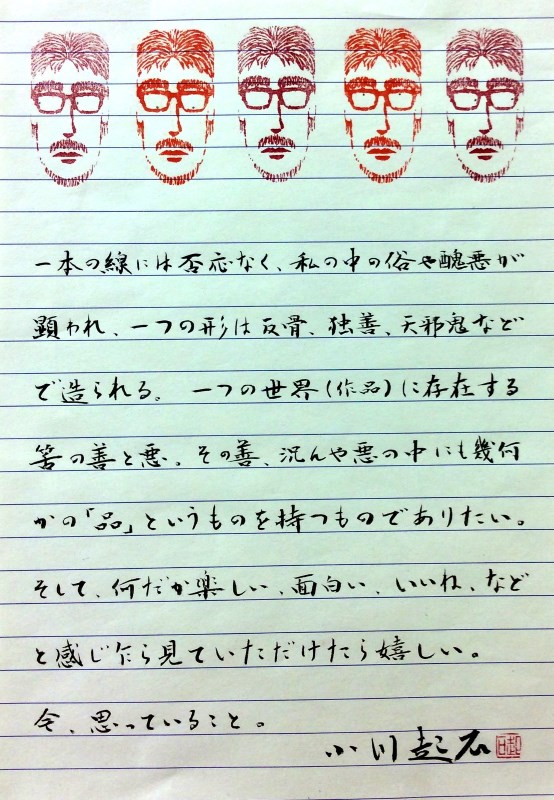 一本の線には否応なく、私の中の俗や醜悪が
顕われ、一つの形は反骨、独善、天邪鬼など
で造られる。一つの世界(作品)に存在する
筈の善と悪。その善、況んや悪の中にも幾何
かの「品」というものを持つものでありたい。
そして、何だか楽しい、面白い、いいね、など
と感じたら見ていただけたら嬉しい。
今、思っていること。
小川起石